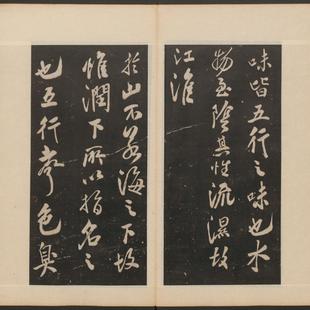 味皆五行之味也水
物至陰其性流濕故
江淮
於山不若海之下故
惟潤下所以指名之
也五行聲色臭